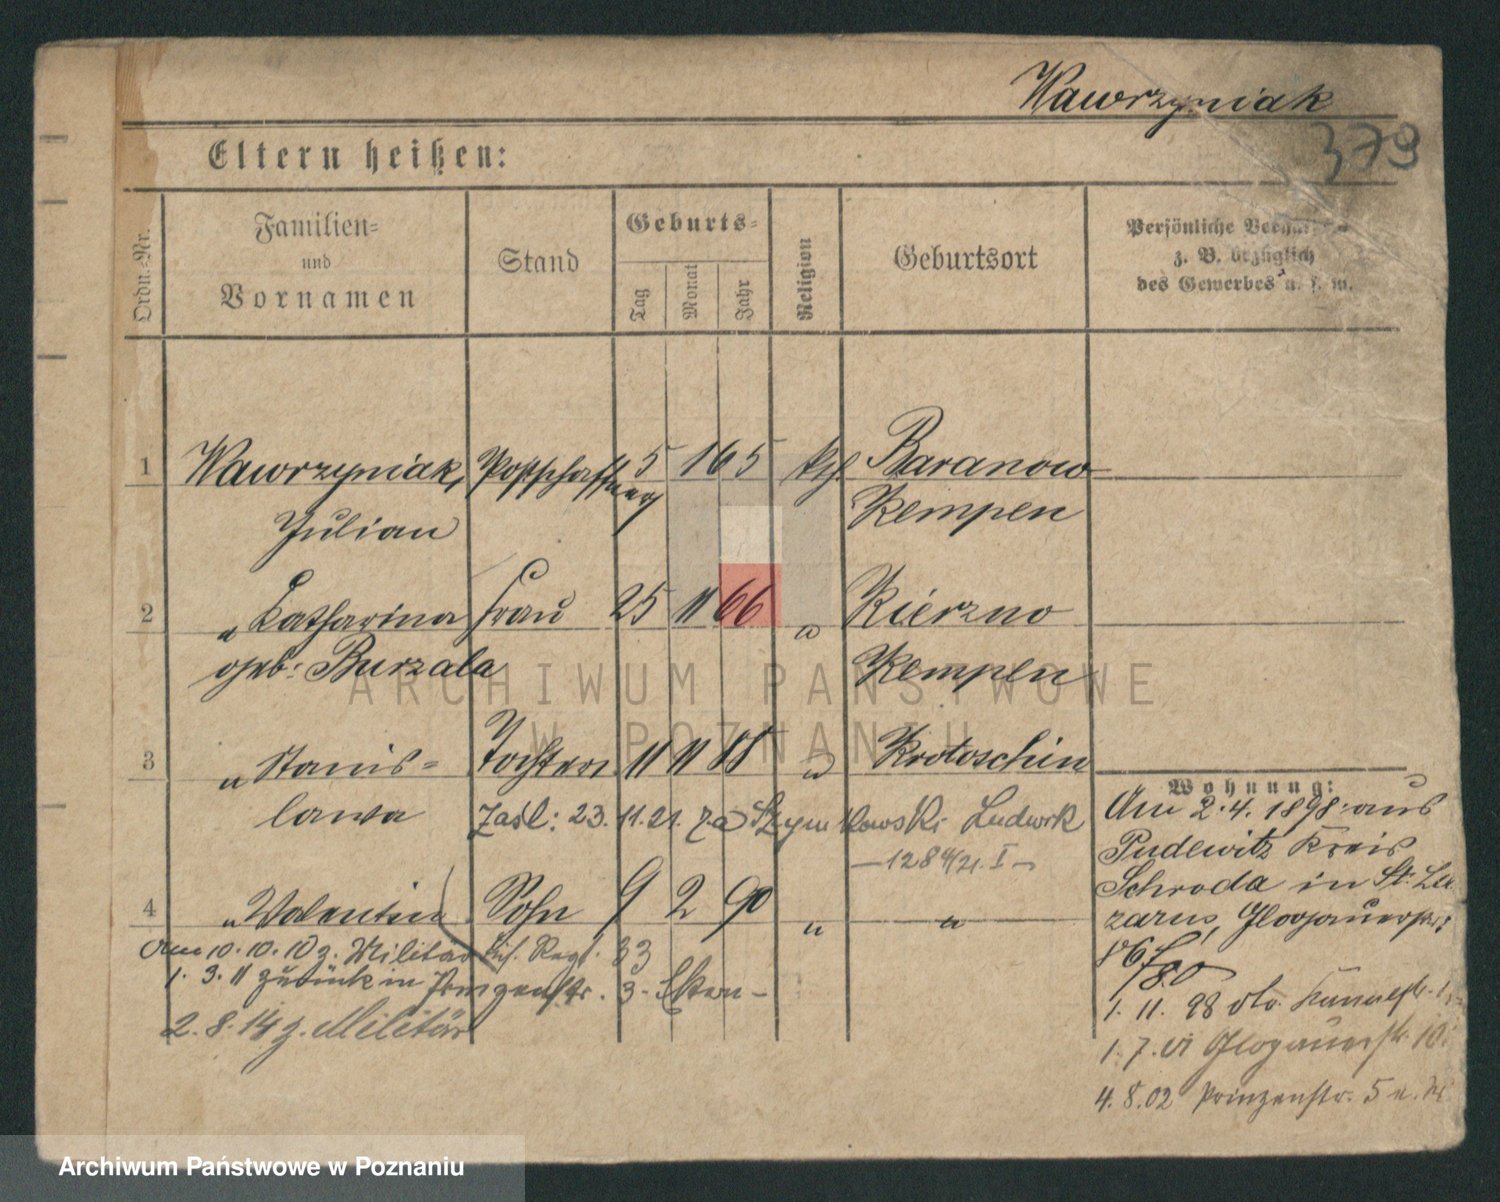 Wawrzyniak
379
Eltern heißen:
Ordn.-Nr.
Familien-
und
Vornamen
Stand
Geburts-
Tag
Monat
Jahr
Religion
Geburtsort
Persönliche
z. B. bezüglich
des Gewerbes u. s. w.
1 Wawrzyniak, 5 1 65 kth. Baranow
Julian Kempen
2 " Katharina Frau 25 11 66 " Kierzno
geb: Burzala Kempen
3 " Stanis- Tochter 11 11 88 " Krotoschin
lawa Zaśl: 23. 11. 21. za Szymkowski Ludwik
4 " Valentin Sohn 9 2 90 " "
Am 10. 10. 10 z. Militär Inf. Regt. 33
1. 3. 11 zurück in Prinzenstr. 3 - Eltern -
2. 8. 14 z. Militär
Wohnung:
Am 2. 4. 1898 aus
Pudewitz Kreis
Schroda in St. La-
zarus, Glogauerstr.
1. 11. 98 dto.
1. 7. 01 Glogauerstr. 10
4. 8. 02 Prinzenstr. 5
ARCHIWUM PAŃSTWOWE
W POZNANIU
Archiwum Państwowe w Poznaniu